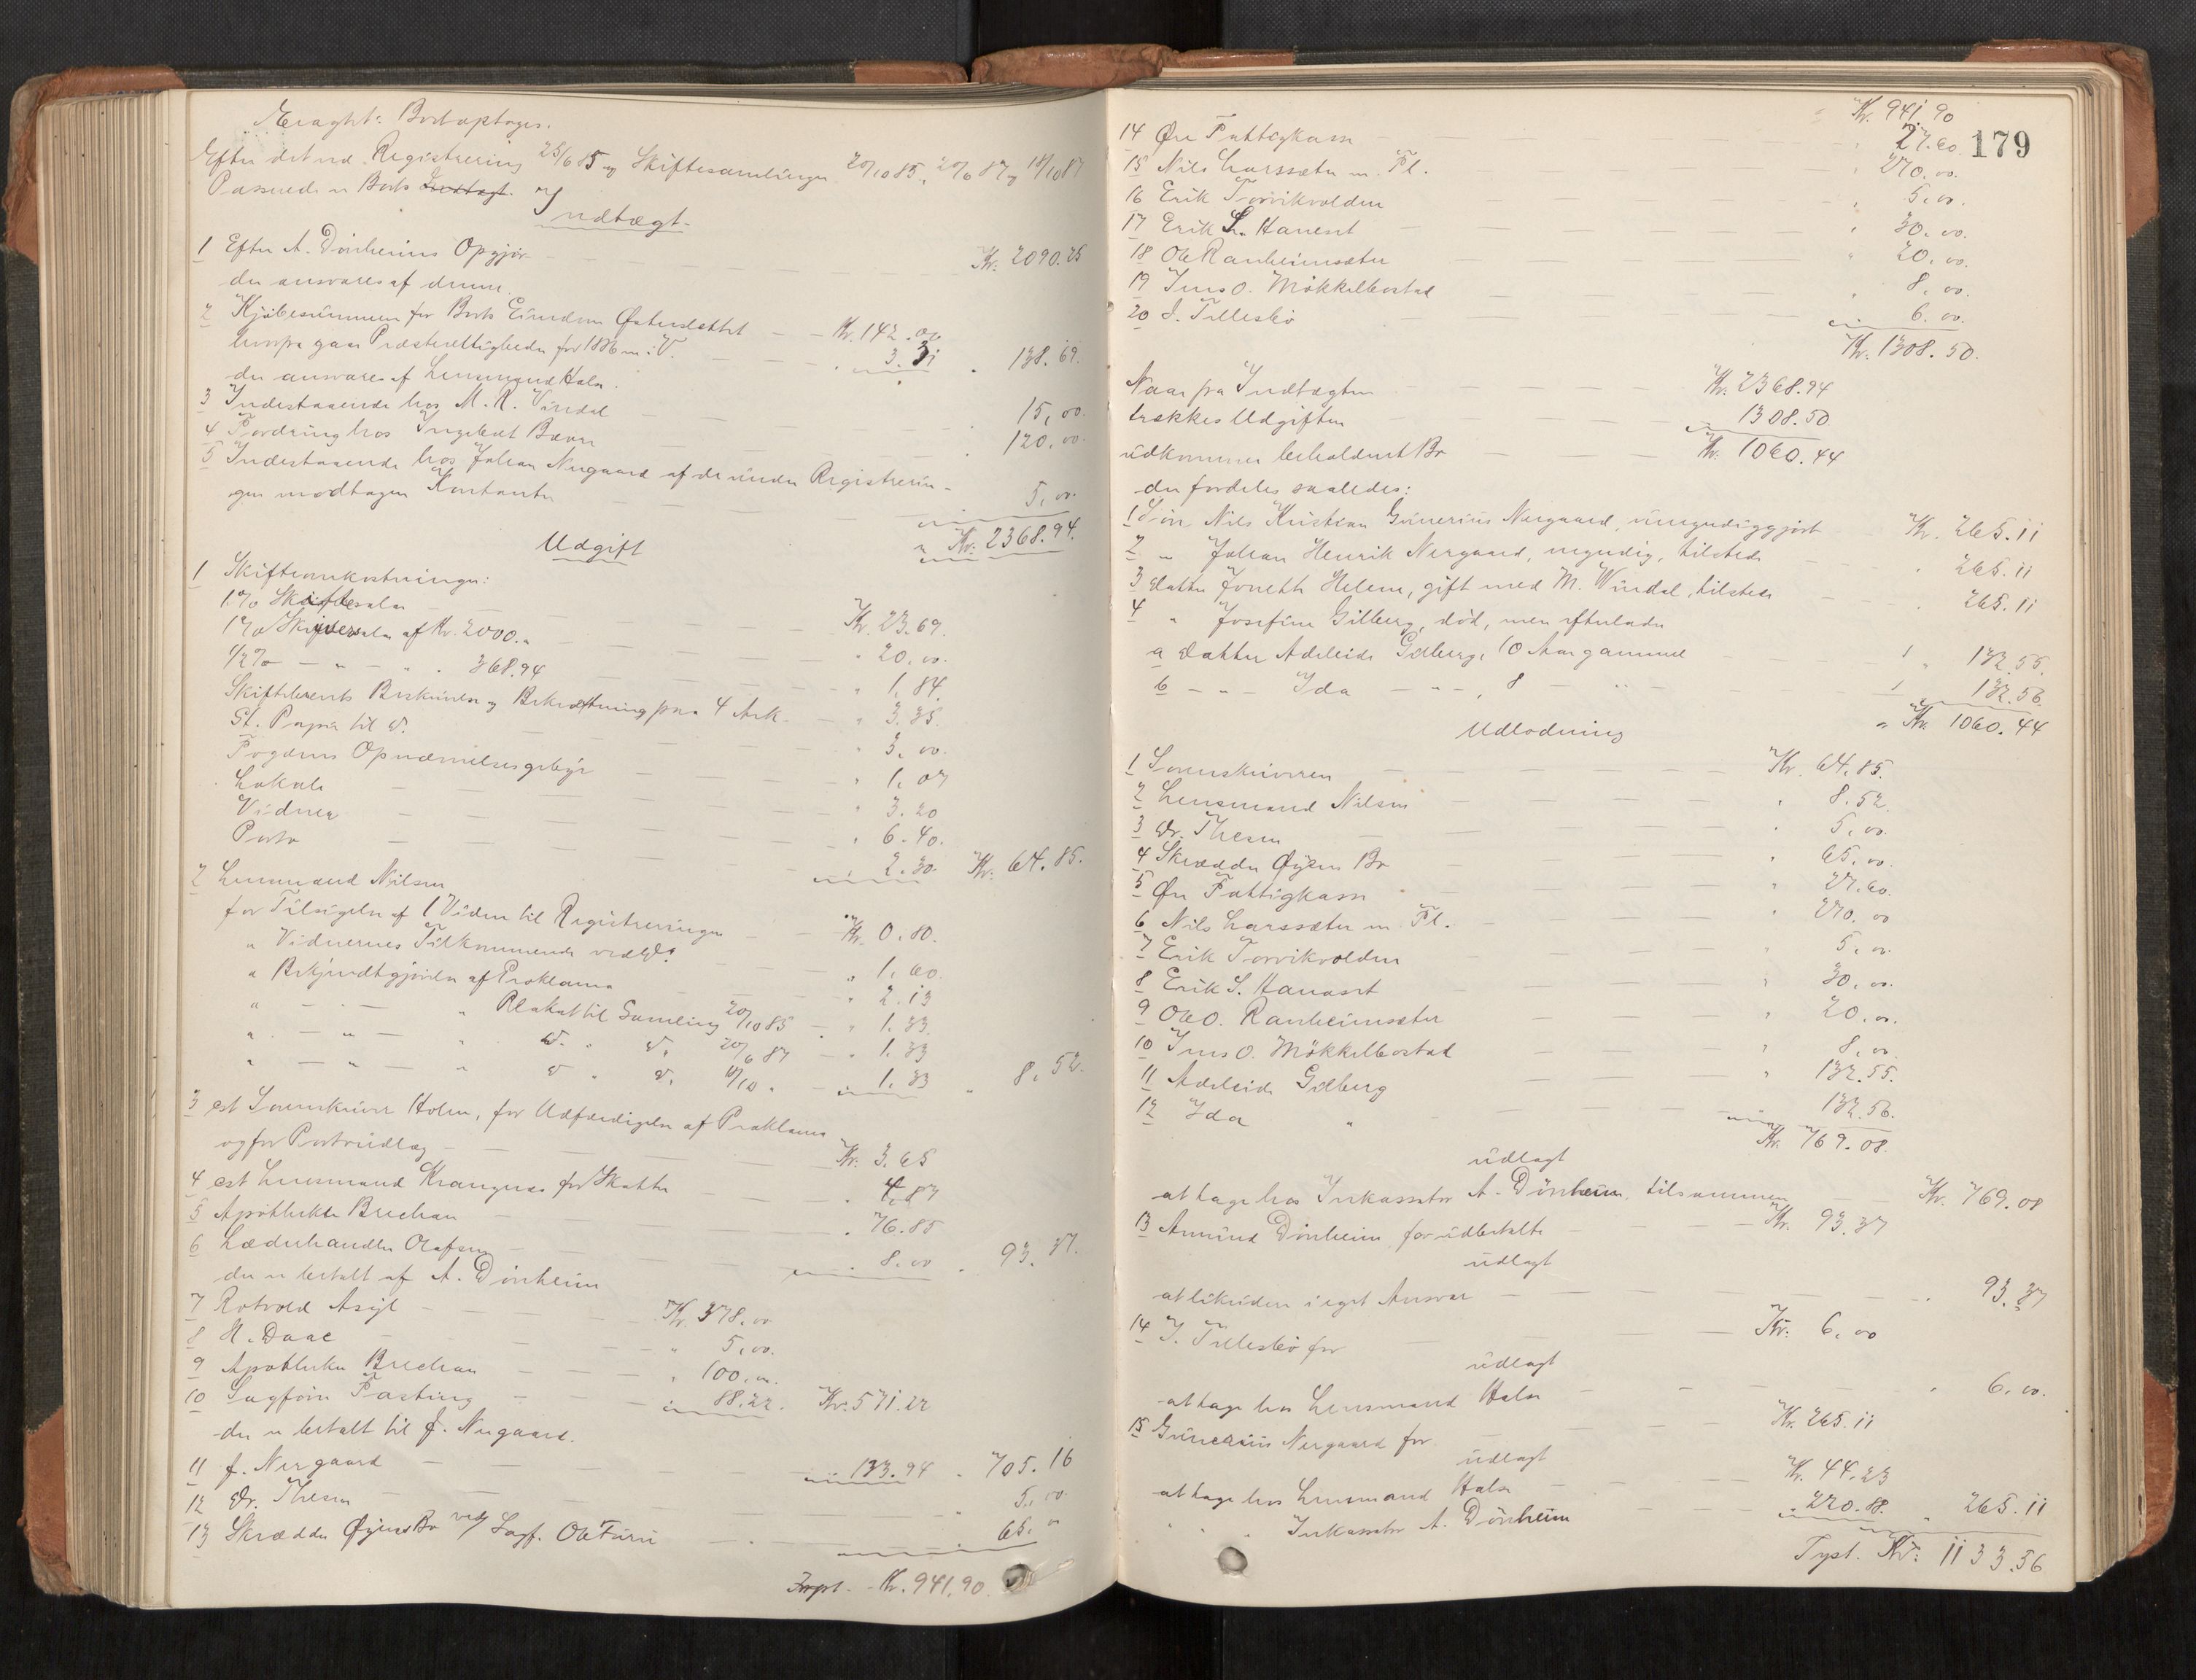 Efter det ved Registrering 25/6 85 og Skiftesamlinger 20/10 85, 20/6 87 og 18/10 87
Passerede er Boets Indtægt.
Indtægt.
1 Efter A. Dönheims Opgjör Kr. 2090.25
der ansvares af denne.
2 Kjöbesummen for Boets Eiendom Kr. 142.00
herfra gaar Præsterettigheder for 1886 m. V. 3.31 138.69.
der ansvares af Lensmand Halse.
3 Indestaaende hos M. R. Vindal 15,00.
4 Fordring hos Ingebrt 120.00
5 Indestaaende hos Johan Nergaard af de under Registrerin-
gen modtagen Kontanter 5.00
Kr. 2368.94.
Udgift
1 Skifteomkostninger:
1% Skiftesalær Kr. 23.69.
1% Skriversalær af Kr. 2000." " 20.00.
1/2% — " — " . 368.94 " 1.84.
Skiftebrevets Beskrivelse og Bekræftning paa 4 Ark. " 3.35.
St. Papir til D. " 3.00.
Fogdens Opnævnelsesgebyr " 1.07
Lokale " 3.20
Vidner " 6.40.
Porto 2.30 Kr. 64.85.
2 Lensmand Nilsen
for Tilsigelse af 1 Vidne til Registreringen Kr. 0.80.
" Vidnernes Tilkommende ved D: " 1.60.
" Bekjendtgjörelse af Proklama " 2.13
" — " — " Plakat til Samling 20/10 85 " 1.33.
" — " — " D. " D. 20/6 87 " 1.33
" — " — " D " D. 18/10 " 1.33 " 8.52.
3 cst Sorenskriver Holm, for Udfærdigelse af Proklama
og for Portoudlæg Kr. 3.65
4 cst Lensmand Krangnes for Skatter " 4.87
5 Apotheker Brechan " 76.85
6 Læderhandler Olafsen " 8.00 " 93.37.
der er betalt af A. Dönheim
7 Rotvold Asyl Kr. 378.00
8 H. Daae " 5.00.
9 Apotheker Brechan " 100.00.
10 Sagförer Fasting 88.22. Kr. 571.22
der er betalt til J. Nergaard.
11 J. Nergaard 133.94 " 705.16
12 Dr. Thesen " 5.00
13 Skrædder Öyens Bo ved Sagf. Ole Furu 65.00
Trspt. Kr. 941.90.
179
Kr. 941.90
14 Öre Fattigkasse " 27.60.
15 Nils Larssæter m. Fl. " 270.00.
16 Erik Torvikvolden " 5.00.
17 Erik S. Haneset " 30.00.
18 Ole Ranheimsæter " 20.00.
19 Jens O. Mökkelbostad " 8.00.
20 J. Tillesbö 6.00.
Kr. 1308.50.
Naar fra Indtægten Kr. 2368.94
trækkes Udgiften 1308.50
udkommer beholdent Bo Kr. 1060.44
der fordeles saaledes:
1 Sön Nils Kristian Gunerius Nergaard, umyndiggjort Kr. 265.11
2 " Johan Henrik Nergaard, myndig, tilstede " 265.11
3 Datter Jonette Helene, gift med M. Windal, tilstede " 265.11
4 " Josefine Gilberg, död, men efterlader
a Datter Adeleide Gilberg, 10 Aar gammel " 132.55.
b — " — Ida — " —, 8 — " — 132.56.
" Kr. 1060.44
Udlodning
1 Sorenskriveren Kr. 64.85.
2 Lensmand Nilsen " 8.52.
3 Dr. Thesen " 5.00.
4 Skrædder Öyens Bo " 65.00.
5 Öre Fattigkasse " 27.60.
6 Nils Larssæter m. Fl. " 270.00
7 Erik Torvikvolden " 5.00.
8 Erik S. Hanaset " 30.00.
9 Ole O. Ranheimsæter " 20.00.
10 Jens O. Mökkelbostad " 8.00
11 Adeleide Gilberg " 132.55.
12 Ida " 132.56.
Kr. 769.08.
udlagt
at tage hos Inkassator A. Dönheim tilsammen Kr. 769.08
13 Amund Dönheim for udbetalte Kr. 93.37
udlagt
at likvidere i eget Ansvar " 93.37
14 J. Tillesbö for Kr. 6.00
udlagt
at tage hos Lensmand Halse " 6.00.
15 Gunerius Nergaard for Kr. 265.11
udlagt
at tage hos Lensmand Halse Kr. 44.23
" " " Inkassator A. Dönheim " 220.88. " 265.11
Trspt. Kr. 1133.56